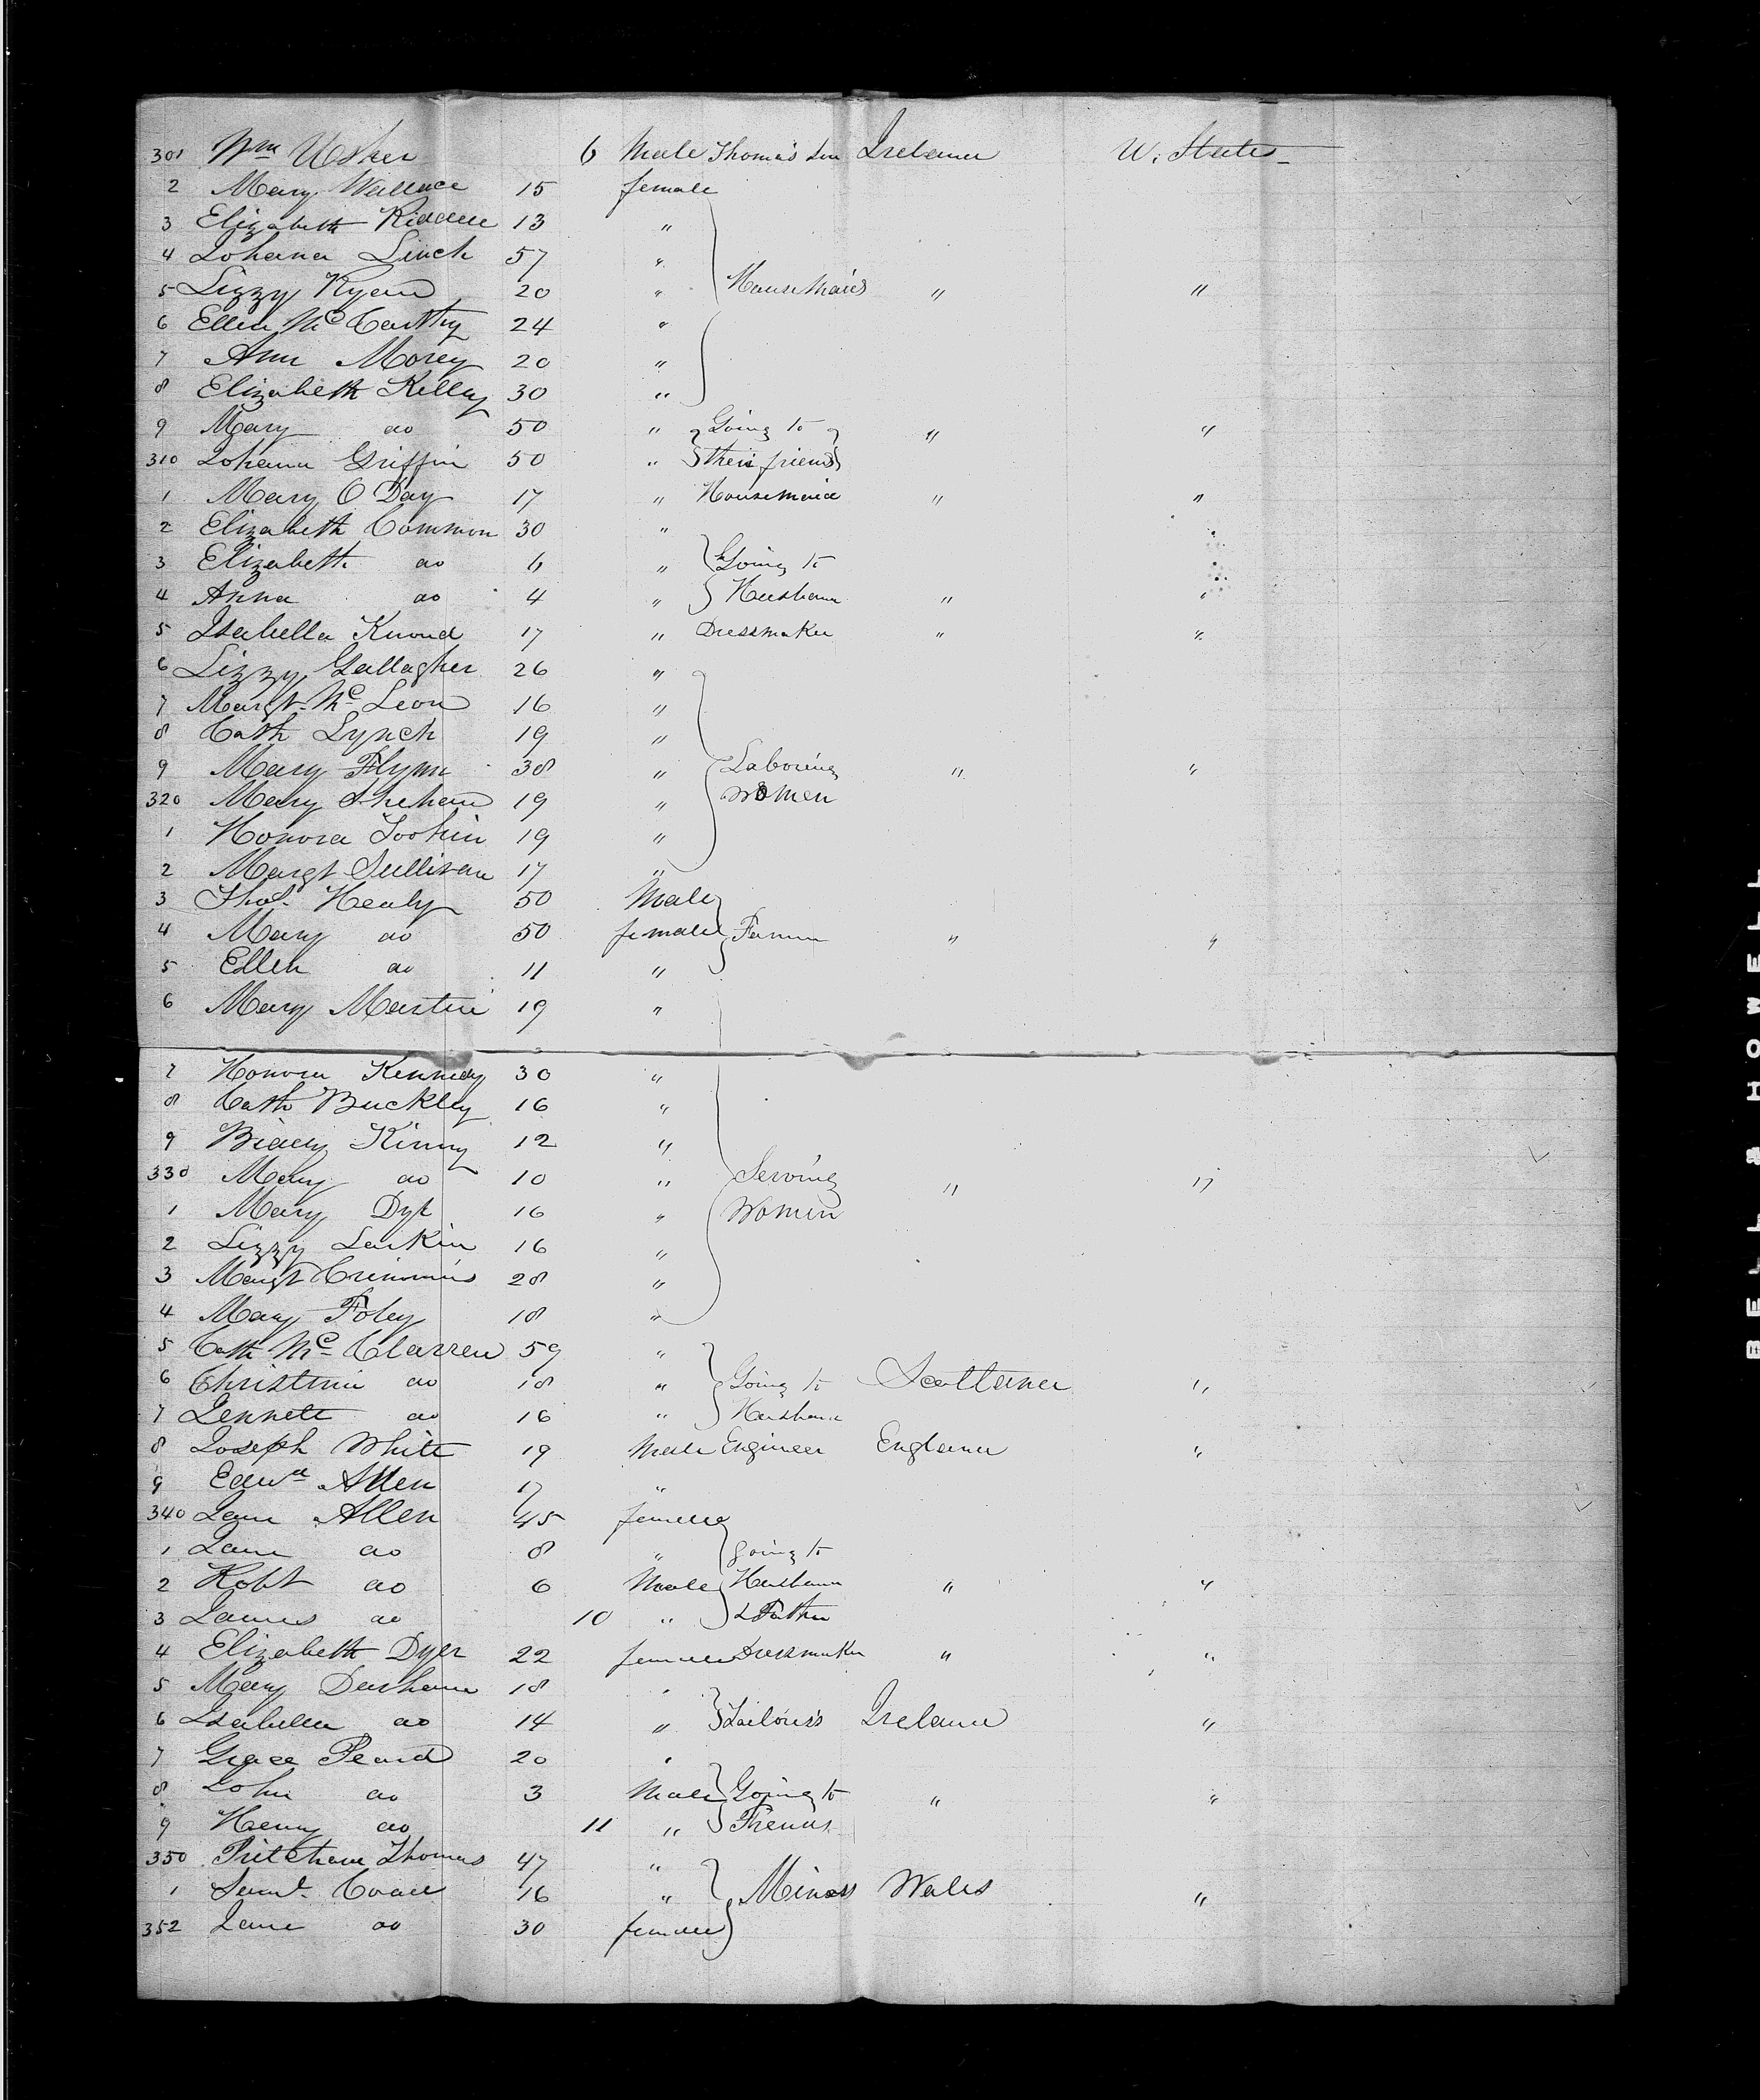 301 Wm Usher 6 Male Thomas's Son Ireland U. States
2 Mary Wallace 15 female
3 Elizabeth Riddell 13 "
4 Johana Linch 57 "
5 Lizzy Ryan 20 " House Maids " "
6 Ellen Mc Carthy 24 "
7 Ann Morey 20 "
8 Elizabeth Kelly 30 "
9 Mary do 50 " Going to " "
310 Johana Griffin 50 " their friends
1 Mary O Day 17 " Housemaid " "
2 Elizabeth Common 30 " "
3 Elizabeth do 6 " Going to "
4 Anna do 4 " Husband " "
5 Isabella 17 " Dressmaker " "
6 Lizzy Gallagher 26 "
7 Margt Mc Leon 16 "
8 Cath Lynch 19 "
9 Mary Flynn 38 " Laboring " "
320 Mary Shehan 19 " Women
1 Honora 19 "
2 Margt Sullivan 17 "
3 Thos. Healy 50 Male
4 Mary do 50 female Farmer " "
5 Ellen do 11 "
6 Mary Martin 19 "
7 Honora Kennedy 30 "
8 Cath Buckley 16 "
9 Biddy Kinny 12 "
330 Mary do 10 " Serving " "
1 Mary Dyt 16 " Women
2 Lizzy Larkin 16 "
3 Margt Crimmins 28 "
4 Mary Foley 18 "
5 Cath Mc Clarren 59 "
6 Christina do 18 " Going to Scotland "
7 Jennett do 16 " Husband
8 Joseph White 19 Male Engineer England "
9 Edwd Allen 17 "
340 Jane Allen 45 female
1 Jane do 8 " going to
2 Robt do 6 Male Husband " "
3 James do 10 " & Father
4 Elizabeth Dyer 22 female Dressmaker " "
5 Mary Durham 18 "
6 Isabella do 14 " Tailores's Ireland "
7 Grace Peard 20 "
8 John do 3 Male Going to " "
9 Henry do 11 " Friends
350 Thomas 47 "
1 Saml. 16 " Miners Wales "
352 Jane do 30 female
BELL & HOWELL